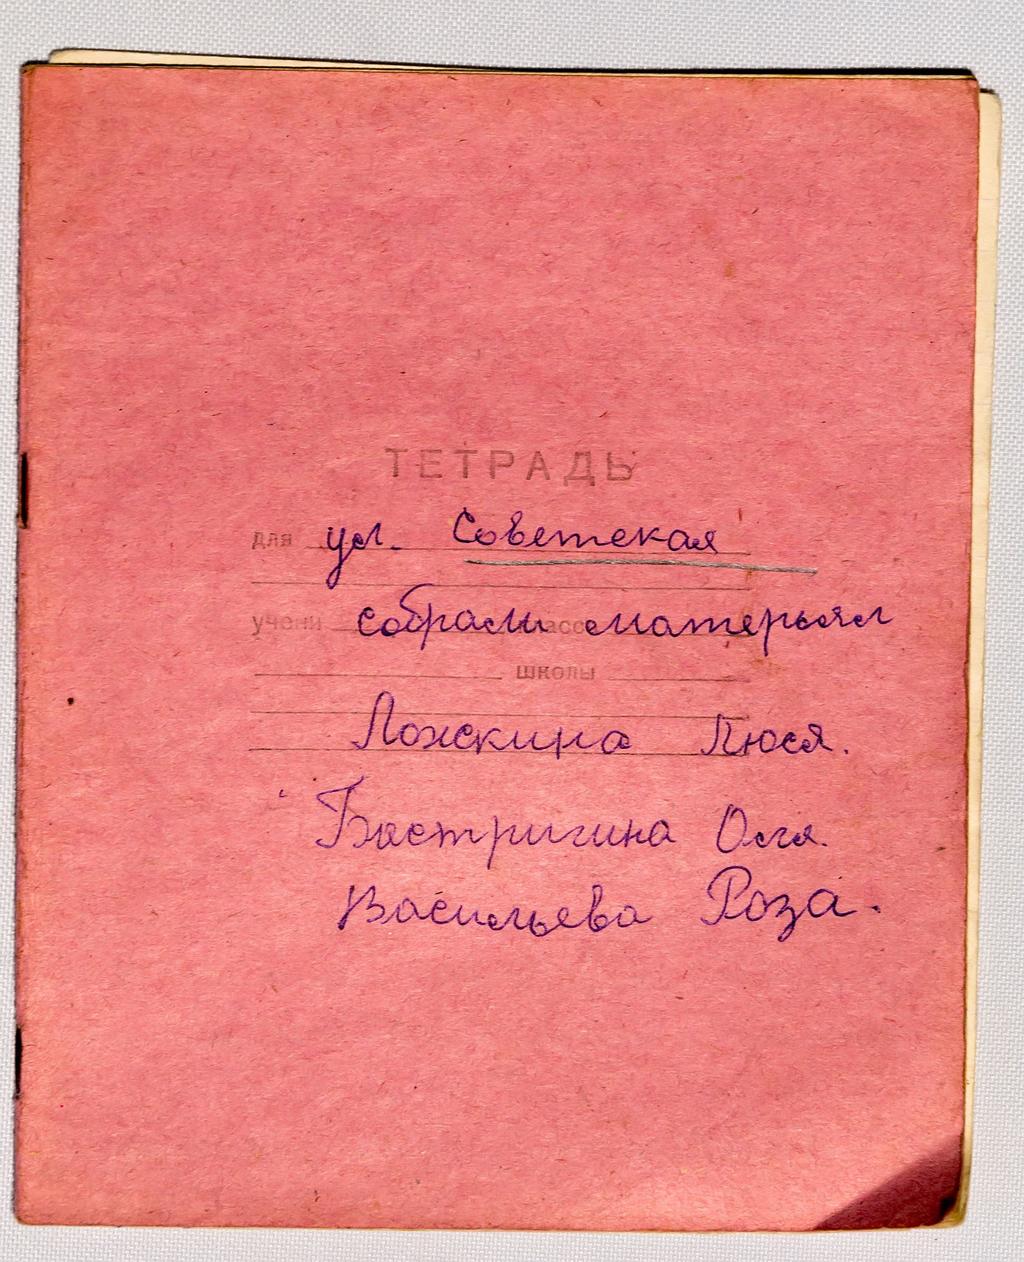 ТЕТРАДЬ
для ул. Советская
учени собрали класс матерьял
школы
Ложкина Люся.
Бастригина Оля.
Васильева Роза.